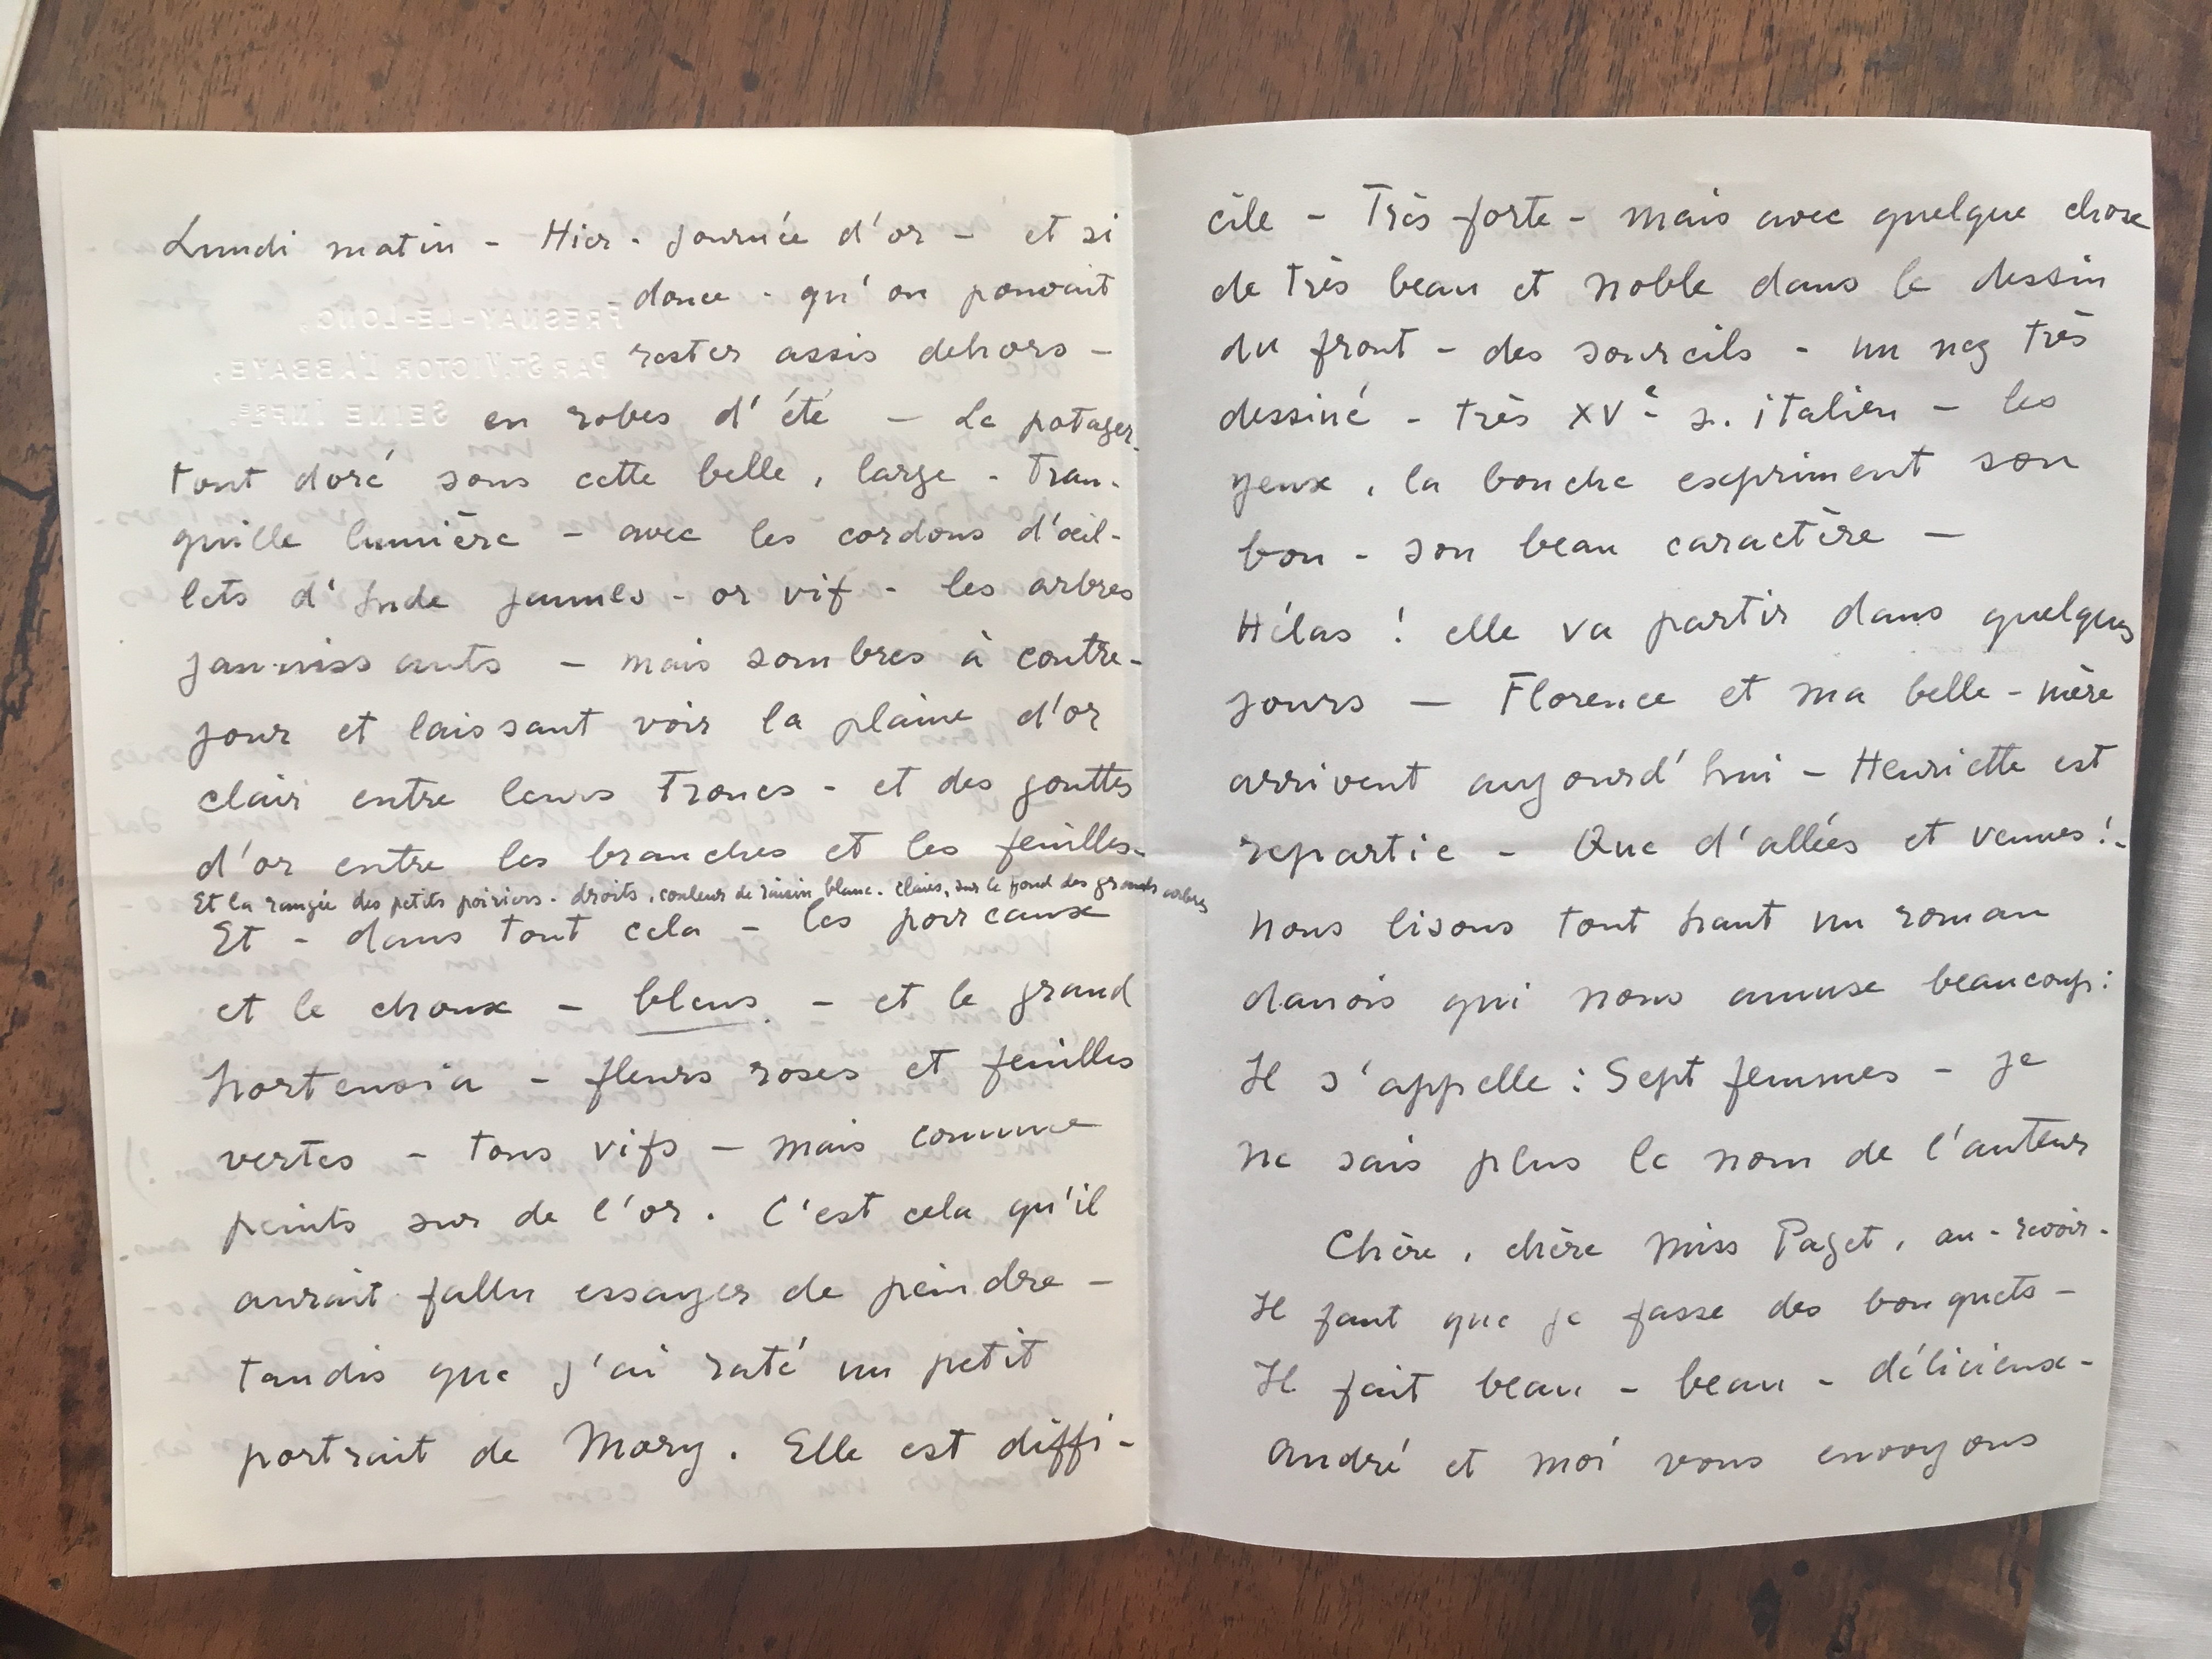 Lundi matin - Hier - journée d'or - et si
- douce - qu'on pouvait
rester assis dehors -
en robes d'été - Le potager -
tout doré sous cette belle, large - tran-
quille lumière - avec les cordons d'œil-
lets d'Inde jaunes - or vif - les arbres
jaunissants - mais sombres à contre-
jour et laissant voir la plaine d'or
clair entre leurs troncs - et des gouttes
d'or entre les branches et les feuilles -
Et la rangée des petits poiriers - droits, couleur de raisin blanc - clairs, sur le fond des grands arbres
Et - dans tout cela - les poireaux
et le choux - bleus - et le grand
hortensia - fleurs roses et feuilles
vertes - tons vifs - mais comme
peints sur de l'or. C'est cela qu'il
aurait fallu essayer de peindre -
tandis que j'ai raté un petit
portrait de Mary. Elle est diffi-
cile - Très forte - mais avec quelque chose
de très beau et noble dans le dessin
du front - des sourcils - un nez très
dessiné - très XVe s. italien - les
yeux, la bouche expriment son
bon - son beau caractère -
Hélas ! elle va partir dans quelques
jours - Florence et ma belle-mère
arrivent aujourd'hui - Henriette est
repartie - Que d'allées et venues ! -
Nous lisons tout haut un roman
danois qui nous amuse beaucoup :
Il s'appelle : Sept femmes - je
ne sais plus le nom de l'auteur
Chère, chère Miss Paget, au-revoir -
Il faut que je fasse des bouquets -
Il fait beau - beau - délicieux -
André et moi vous envoyons
FRESNAY-LE-LONG,
PAR ST. VICTOR L'ABBAYE,
SEINE INFRE.